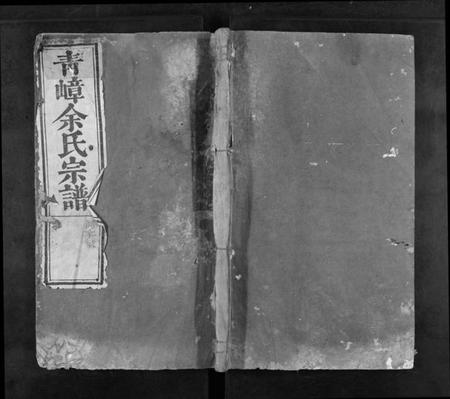 青嶂余氏宗譜